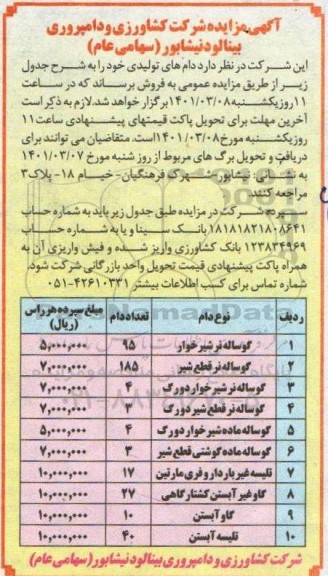 آگهی مزایده شرکت کشاورزی و دامپروری
بینالود نیشابور (سهامی عام)
این شرکت در نظر دارد دام های تولیدی خود را به شرح جدول
زیر از طریق مزایده عمومی به فروش برساند که در ساعت
۱۱ روز یکشنبه ۱۴۰۱/۰۳/۰۸ برگزار خواهد شد. لازم به ذکر است
آخرین مهلت برای تحویل پاکت قیمتهای پیشنهادی ساعت ۱۱
روز یکشنبه مورخ ۱۴۰۱/۰۳/۰۸ است. متقاضیان می توانند برای
دریافت و تحویل برگ های مربوط از روز شنبه مورخ ۱۴۰۱/۰۳/۰۷
به نشانی: نیشابور- شهرک فرهنگیان- خیام ۱۸- پلاک ۳
مراجعه کنند.
سپرده شرکت در مزایده طبق جدول زیر باید به شماره حساب
بانک سینا و یا به شماره حساب
۱۲۳۸۳۴۹۶۹ بانک کشاورزی واریز شده و فیش واریزی آن به
همراه پاکت پیشنهادی قیمت تحویل واحد بازرگانی شرکت شود.
شماره تماس برای کسب اطلاعات بیشتر ۴۲۶۱۰۳۳۱-۰۵۱
ردیف نوع دام تعداد دام مبلغ سپرده هر راس (ریال)
۱ گوساله نر شیرخوار ۹۵ ۵,۰۰۰,۰۰۰
۲ گوساله نر قطع شیر ۱۸۵ ۷,۰۰۰,۰۰۰
۳ گوساله نر شیرخوار دورگ ۴ ۷,۰۰۰,۰۰۰
۴ گوساله نر قطع شیر دورگ ۳ ۷,۰۰۰,۰۰۰
۵ گوساله ماده شیرخوار دورگ ۴ ۵,۰۰۰,۰۰۰
۶ گوساله ماده گوشتی قطع شیر ۳ ۷,۰۰۰,۰۰۰
۷ تلیسه غیر باردار و فری مارتین ۱۷ ۱۰,۰۰۰,۰۰۰
۸ گاو غیر آبستن کشتارگاهی ۲۷ ۱۰,۰۰۰,۰۰۰
۹ گاو آبستن ۱۰ ۱۰,۰۰۰,۰۰۰
۱۰ تلیسه آبستن ۴۰ ۱۰,۰۰۰,۰۰۰
شرکت کشاورزی و دامپروری بینالود نیشابور (سهامی عام)